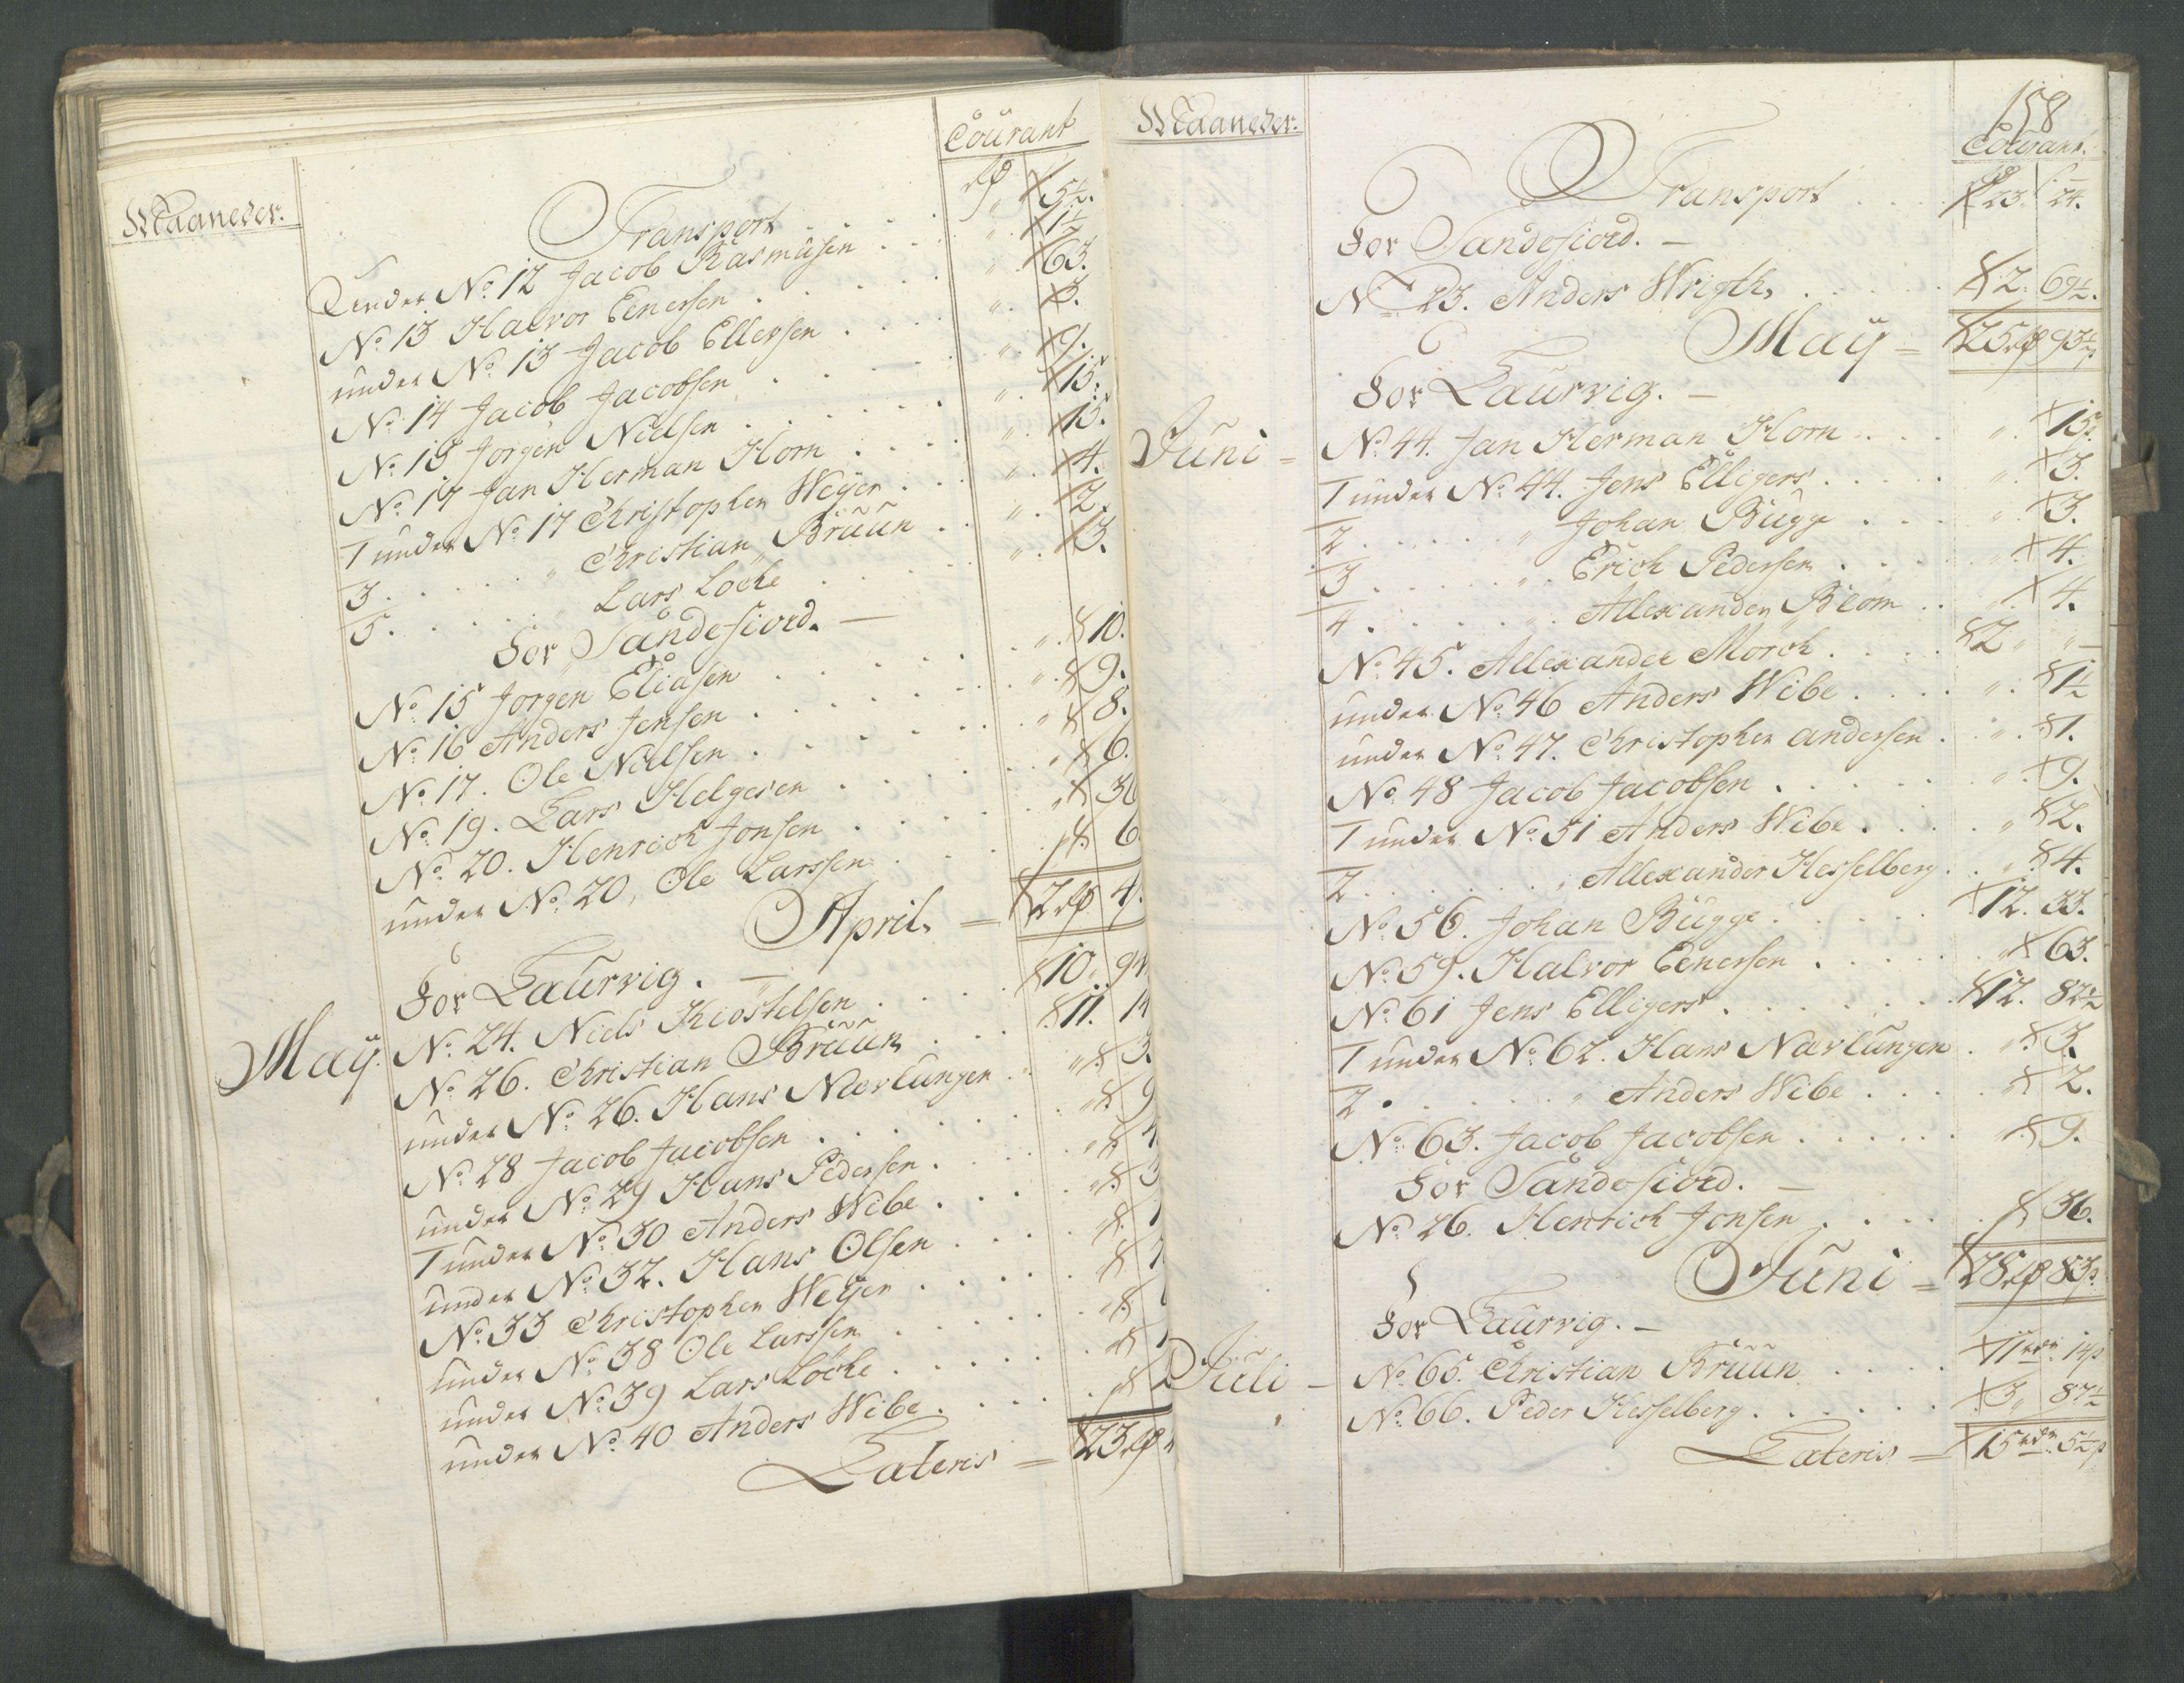 Maaneder.
Courant
Transport . . . . „ 5½.
under No. 12 Jacob Rasmusen . . . „ 1½
No. 13 Halvor Eenersen . . . . „ 63.
under No. 13 Jacob Ellersen . . . . „ 3.
No. 14 Jacob Jacobsen . . . . „ 9.
No. 15 Jørgen Nielsen . . . . „ 15.
No. 17 Jan Herman Horn . . . . „ 15.
1 under No. 17 Christopher Weyer . . . „ 4.
3 . . . . „ Christian Bruun . . „ 2.
5 . . . . „ Lars Løcke . . . „ 3.
For Sandefiord. —
No. 15 Jørgen Eliasen . . . . „ 10.
No. 16 Anders Jensen . . . . „ 9.
No. 17. Ole Nielsen . . . . „ 8.
No. 19. Lars Helgesen . . . . „ 6.
No. 20. Henrich Jonsen . . . . „ 36
under No. 20, Ole Larssen . . . . „ 6
April. = 2 rd 4.
For Laurvig. —
May. No. 24. Niels Kiøstelsen . . . . 10. 94
No. 26. Christian Bruun . . . . 11. 14
under No. 26. Hans Nærlungen . . „ 3.
No. 28 Jacob Jacobsen . . . . „ 9
under No. 29 Hans Pedersen . . . . „ 4
1 under No. 30 Anders Wibe . . . . „ 3
under No. 32. Hans Olsen . . . .
No. 33 Christopher Weyer . . . .
under No. 38 Ole Larssen . . . .
under No. 39 Lars Løcke . . . .
under No. 40 Anders Wibe . . . . „ 2
Lateris = 23 rd
Maaneder.
158
Courant.
Transport . . . 23. 24.
For Sandefiord. —
No. 23. Anders Wrigth, . . . . 2. 69½.
May = 25 rd 93½
For Laurvig. —
Juni = No. 44. Jan Herman Horn . . . . „ 15.
1 under No. 44. Jens Elligers . . . . „ 3.
2 . . . . „ Johan Bugge . . . „ 3.
3 . . . . „ Erich Pedersen . . . „ 4.
4 . . . . „ Allexander Blom . . „ 4.
No. 45. Allexander Morch . . . . 2 „ „ —
under No. 46 Anders Wibe . . . . „ 1½
under No. 47. Christopher andersen . . „ 1.
No. 48 Jacob Jacobsen . . . . „ 9.
1 under No. 51 Anders Wibe . . . . „ 2.
2 . . . . „ Allexander Hesselberg . . „ 4.
No. 56. Johan Bugge . . . . 12. 33.
No. 59. Halvor Eenersen . . . . „ 63.
No. 61 Jens Elligers . . . . 12. 82½
1 under No. 62. Hans Nærlungen . „ 3.
2 . . . . „ Anders Wibe . . . . „ 2.
No. 63. Jacob Jacobsen . . . . „ 9.
For Sandefiord. —
No. 26. Henrich Jonsen . . . . 36.
Juni = 28 rd 83
For Laurvig. —
Juli — No. 65. Christian Bruun . . . . 11 rdr 14
No. 66. Peder Hesselberg . . . . 3 „ 87½
Lateris = 15 rdr 5½